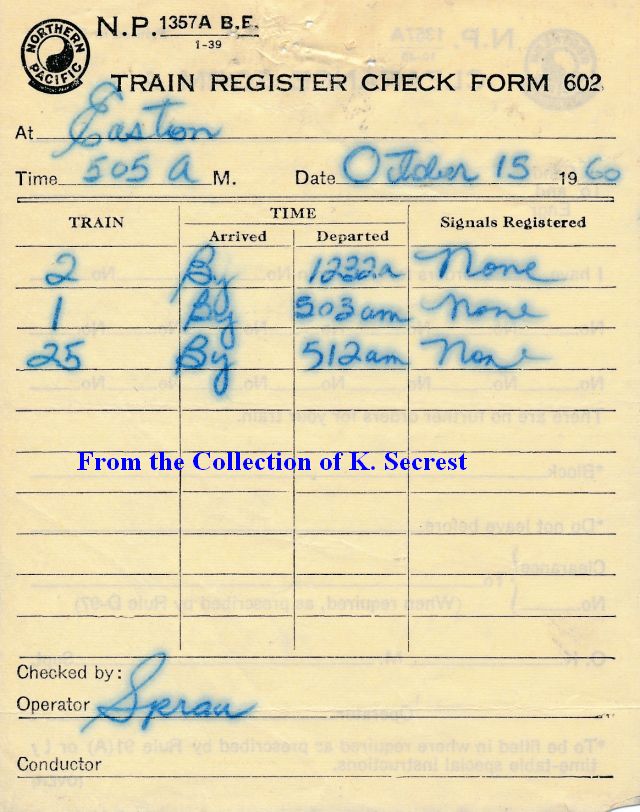 NORTHERN PACIFIC
N.P. 1357A B.E.
1-39
TRAIN REGISTER CHECK FORM 602
At Easton
Time 505 A M. Date October 15 1960
TRAIN TIME Signals Registered
Arrived Departed
2 By 1232a None
1 By 503am None
25 By 512am None
From the Collection of K. Secrest
Checked by:
Operator Sprau
Conductor